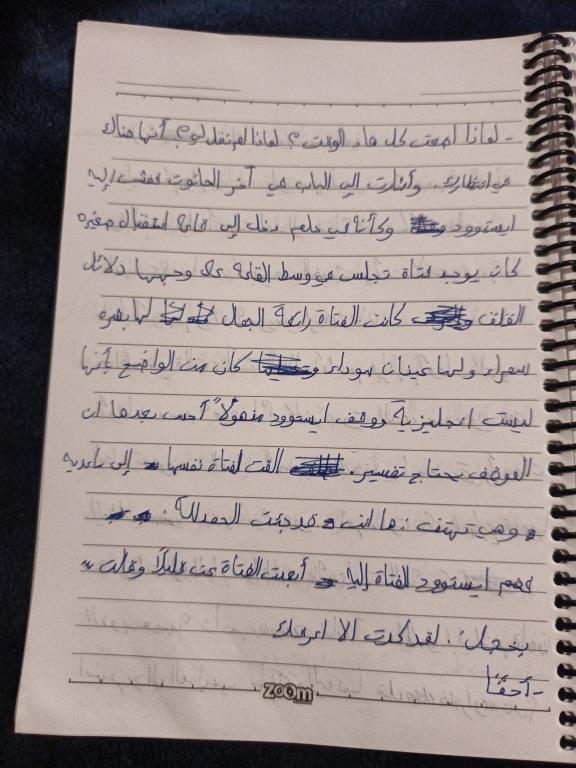 - لماذا اضعت كل هذا الوقت؟ لماذا لم تقل لي؟ أنها هناك
في انتظارك. وأشارت إلى الباب في آخر الحانوت فمشت إليه
ايستوود وكأنه في حلم دخل إلى قاعة استقبال صغيره
كان يوجد فتاة تجلس في وسط القاعة على وجهها دلائل
القلق كانت الفتاة رائعة الجمال لها بشره
سمراء ولها عينان سوداء كان من الواضح أنها
ليست انجليزية ووقف ايستوود مذهولاً أحس بعدها ان
الموقف يحتاج تفسير. القت لفتاة نفسها إلى ساعديه
وهي تهتف: ها انت قد جئت الحمدلله.
فهم ايستوود الفتاة إليه أبعدت الفتاة عنه قليلاً وقالت
بخجل: لقد كدت الا اعرفك
- أحقًا
zoom